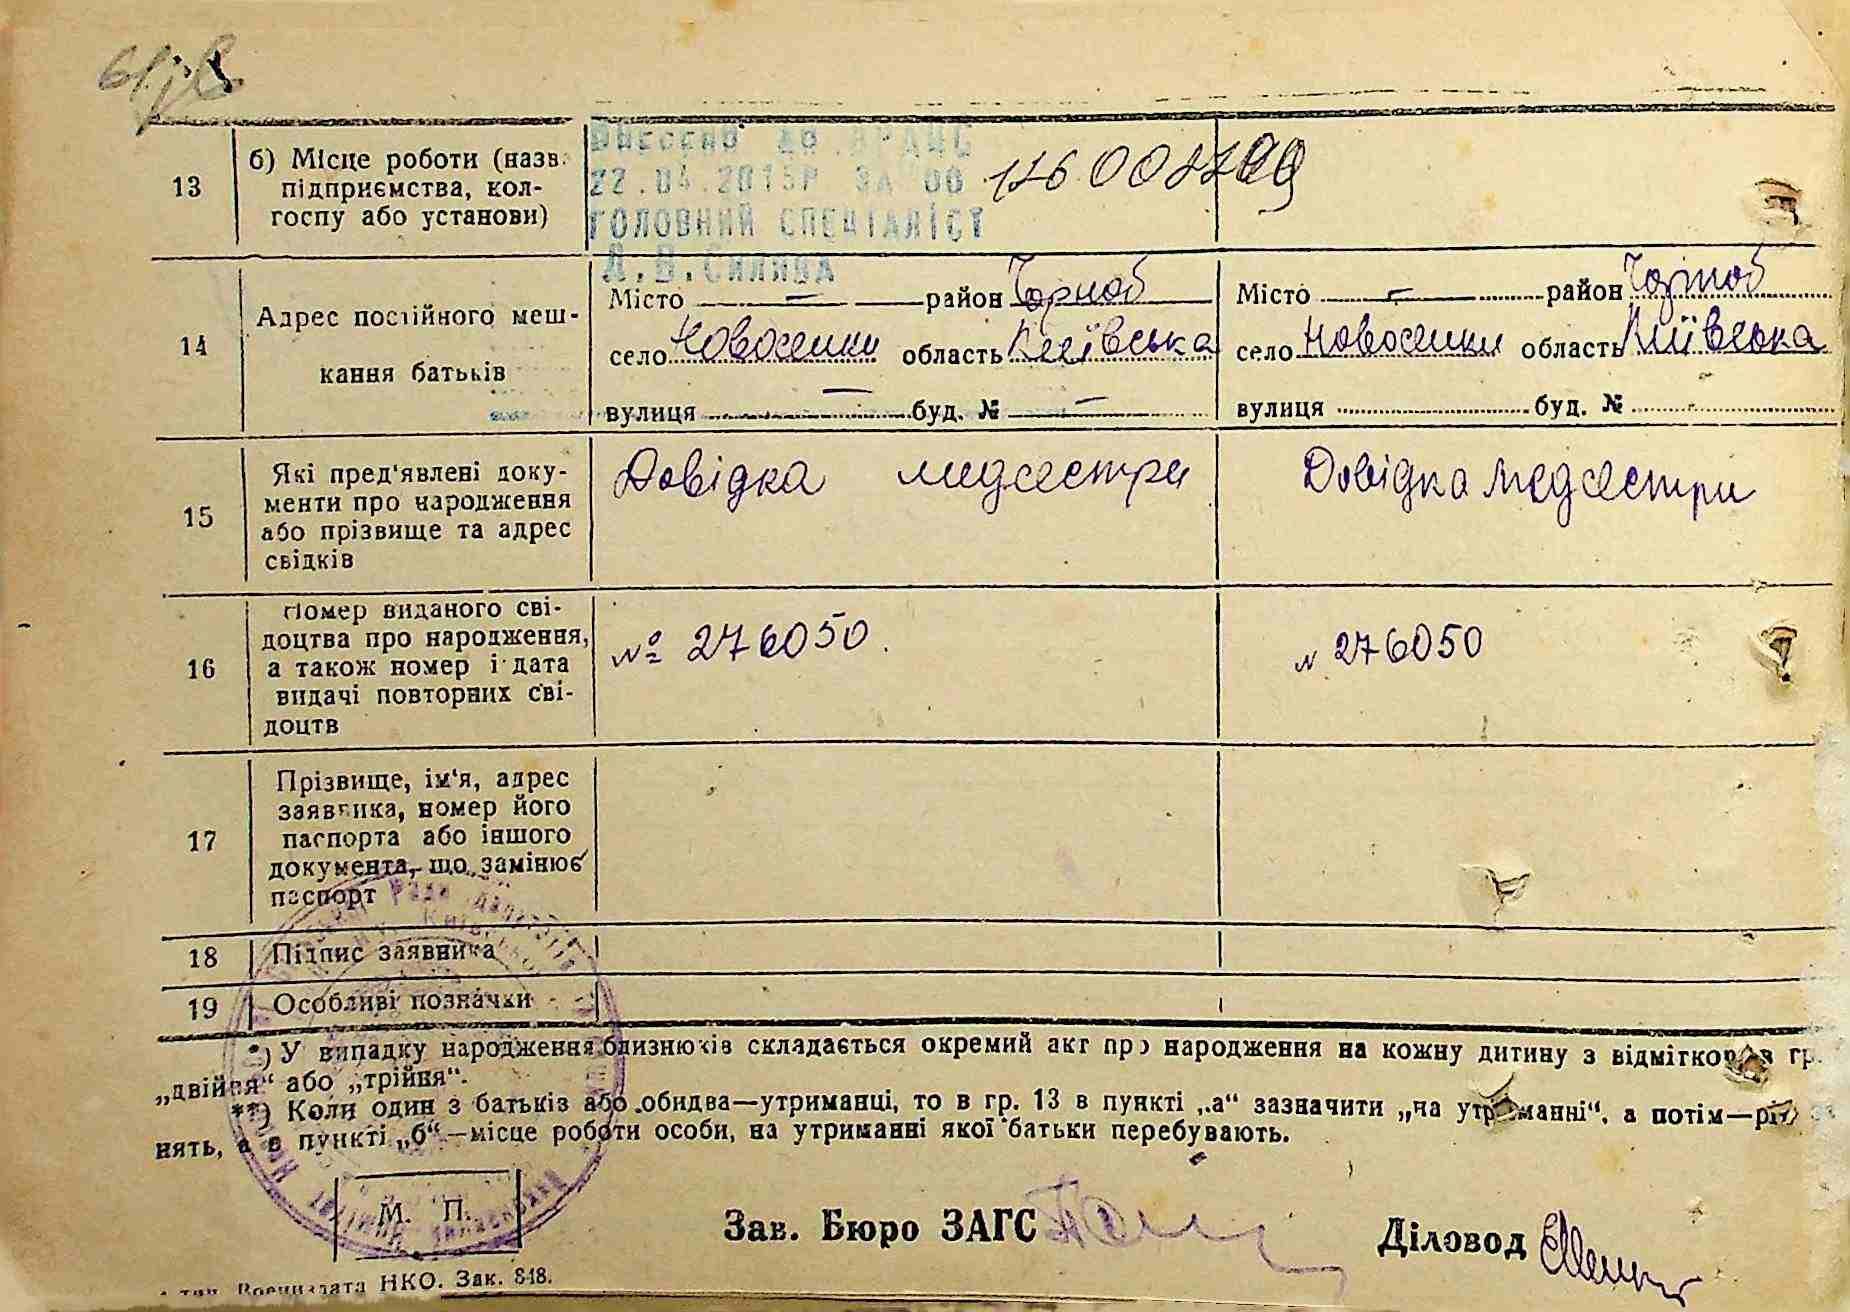 13
б) Місце роботи (назв.
підприємства, кол-
госпу або установи)
Внесено до ДРАЦС
22.04.2015Р ЗА 00 126.0087709
ГОЛОВНИЙ СПЕЦІАЛІСТ
14
Адрес постійного меш-
кання батьків
Місто — район Чорноб
село Новосілки область Київська
вулиця — буд. № —
Місто — район Чорноб
село Новосілки область Київська
вулиця буд. №
15
Які пред'явлені доку-
менти про народження
або прізвище та адрес
свідків
Довідка медсестри
Довідка медсестри
16
Номер виданого сві-
доцтва про народження,
а також номер і дата
видачі повторних сві-
доцтв
№ 276050.
N 276050
17
Прізвище, ім'я, адрес
заявника, номер його
паспорта або іншого
документа, що замінює
паспорт
18
Підпис заявника
19
Особливі позначки
*) У випадку народження близнюків складається окремий акт про народження на кожну дитину з відміткою в гр.
„двійня“ або „трійня“.
**) Коли один з батьків або обидва—утриманці, то в гр. 13 в пункті „а“ зазначити „на утриманні“, а потім—рід за
нять, а в пункті „б“—місце роботи особи, на утриманні якої батьки перебувають.
М. П.
Зав. Бюро ЗАГС
Діловод
тип. Воениздата НКО. Зак. 848.